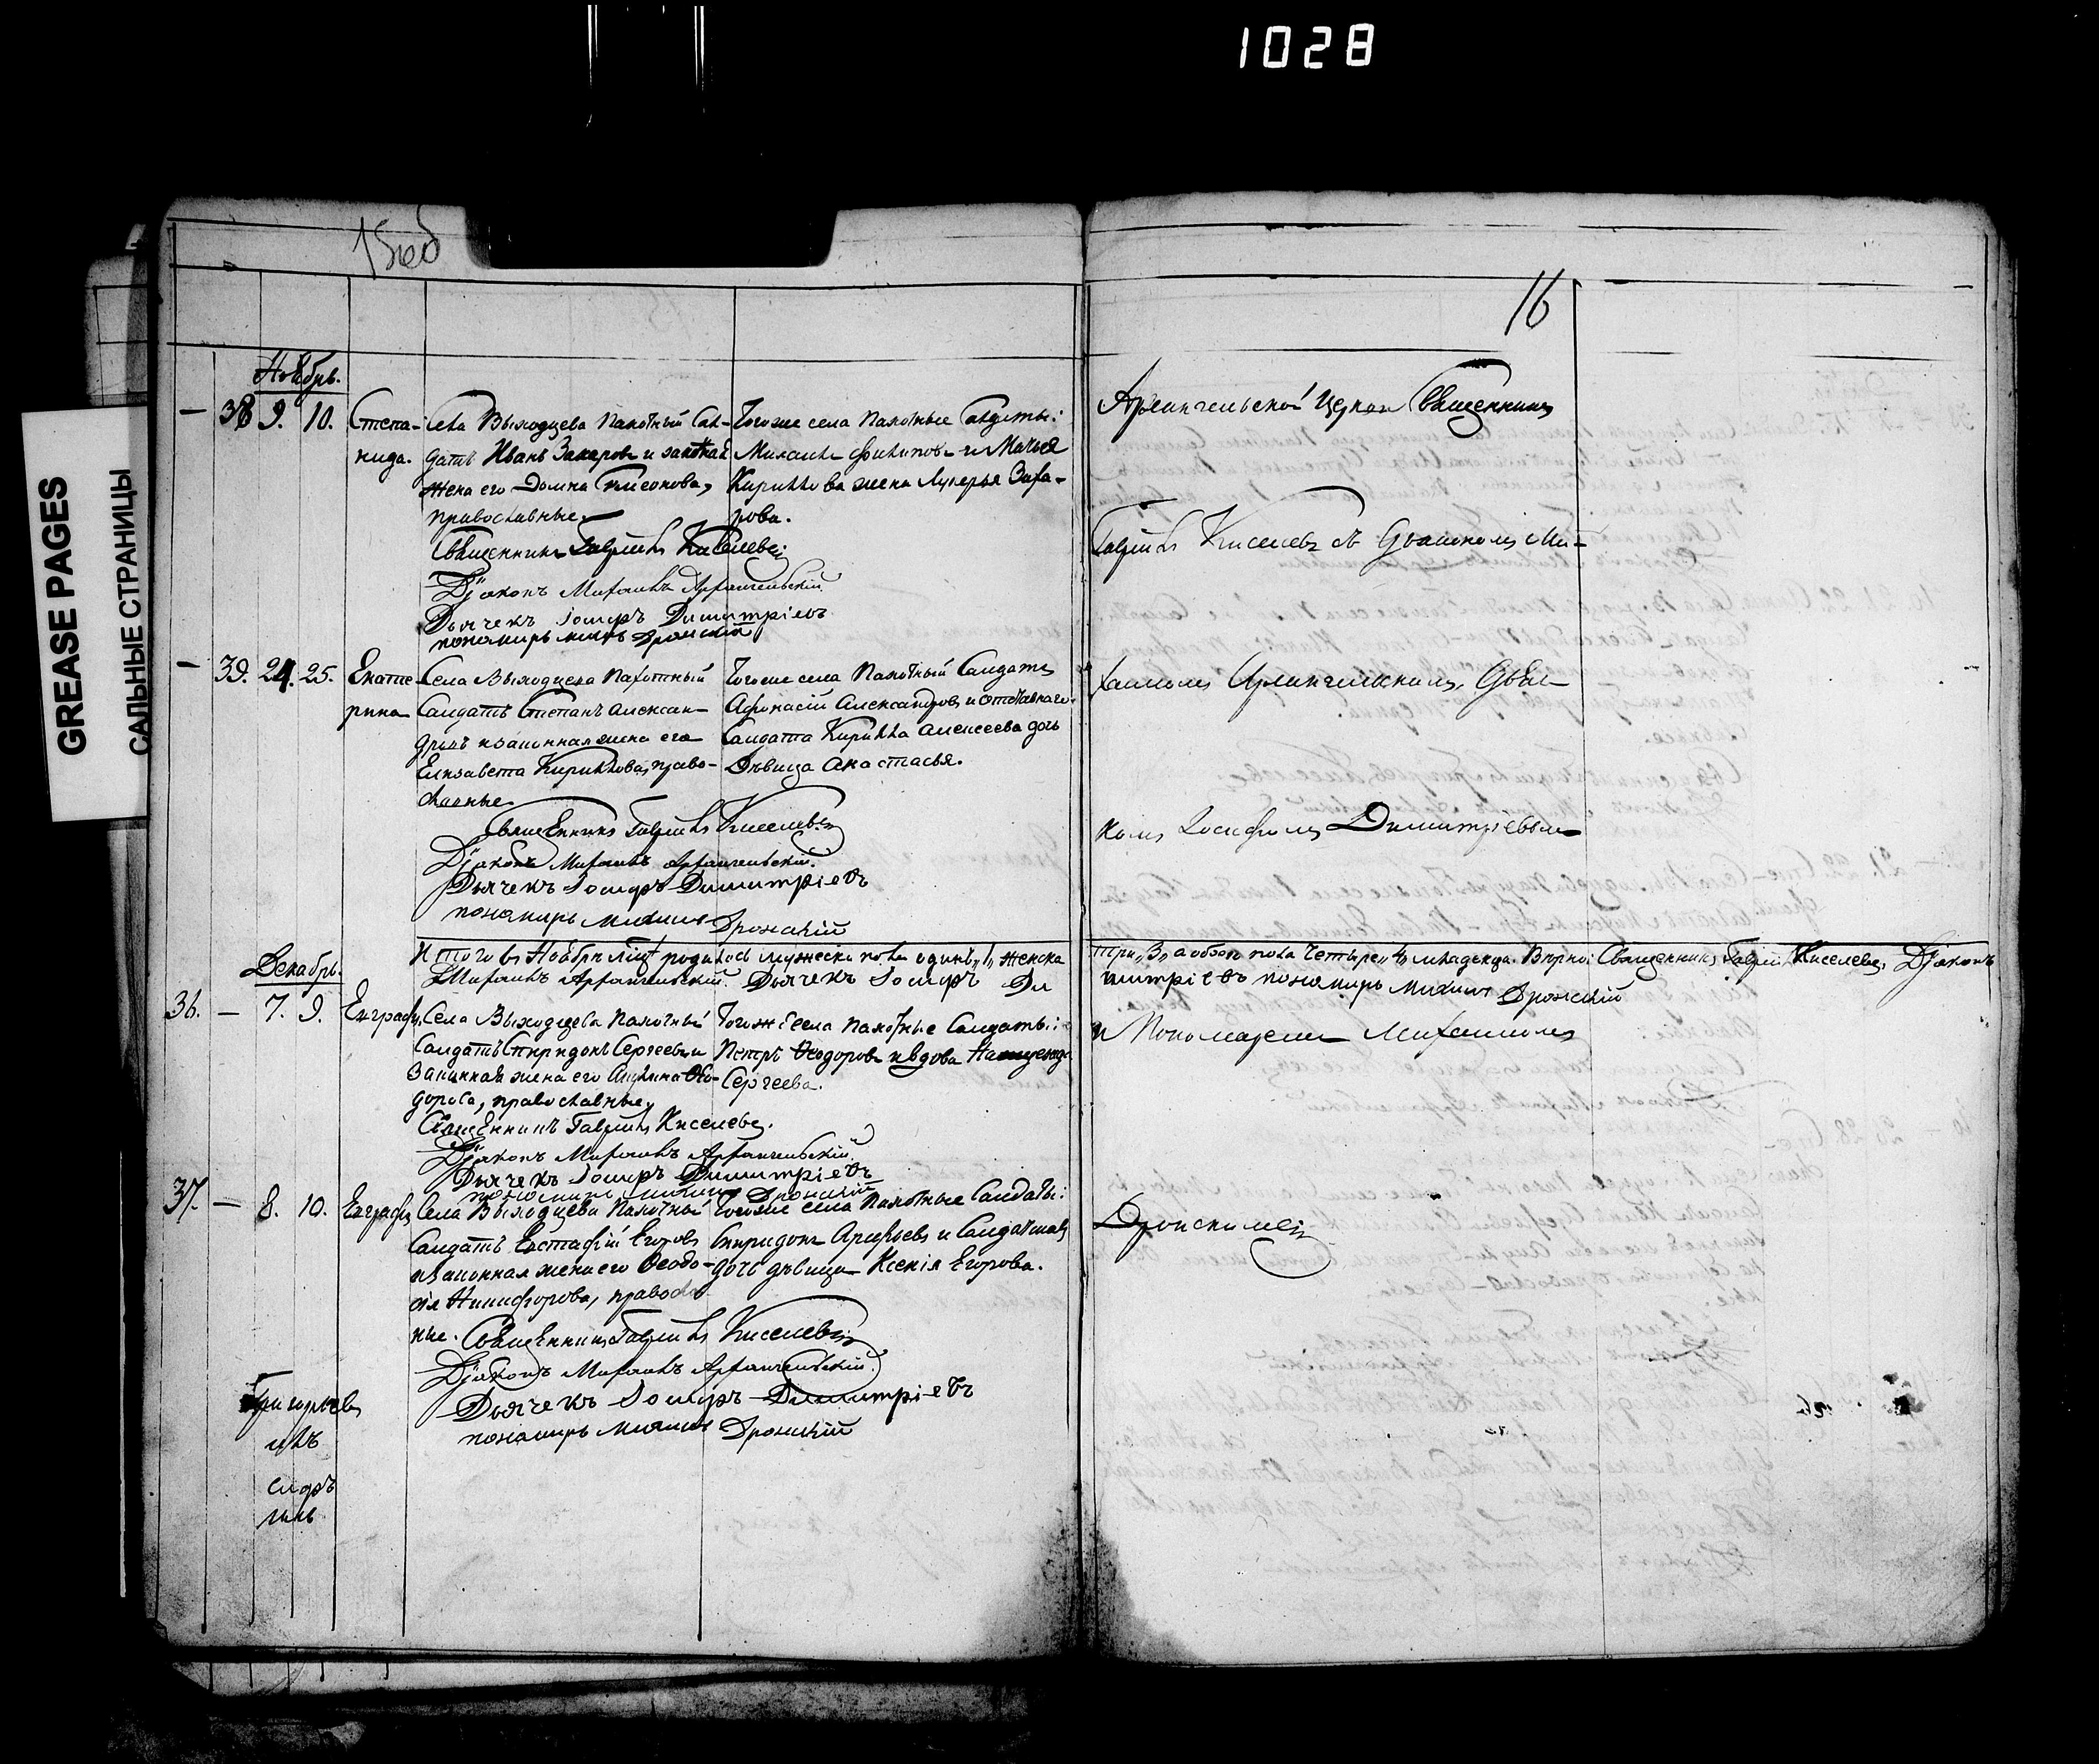 1028
GREASE PAGES
САЛЬНЫЕ СТРАНИЦЫ
15 об
16
Ноябрь.
— 38 9. 10. Степа-
нида.
Села Выходцева Пахотный Сал-
датъ Иванъ Захаровъ и законная
жена его Домна
православные.
Священникъ Гавриилъ Киселевъ
Дïаконъ Михаилъ Архангельскiй
Дьячекъ Iосифъ Димитрiевъ
пономарь Дронскiй
Тогоже села Пахотные Салдаты:
Михаилъ Филиповъ и
Кирилова жена Лукерья Заха-
рова.
Архангельской Церкви Священникъ
Гаврiилъ Киселевъ съ Дьякономъ Ми-
— 39. 24. 25. Екате-
рина
Села Выходцева Пахотный
Салдатъ Степанъ Алексан-
дровъ и законная жена его
Елизавета Кирилова, право-
славные
Священникъ Гавриилъ Киселевъ
Дïаконъ Михаилъ Архангельскiй.
Дьячекъ Iосифъ Димитрiевъ
пономарь Дронскiй
Тогоже села Пахотный Салдатъ
Афонасiй Александровъ и отставнаго
Салдата Кирилла Алексеева дочь
Дѣвица Анастасья.
хаиломъ Архангельскимъ, Дьяч-
комъ Iосифомъ Димитрiевым
Итого въ Ноябрѣ родилось мужеска пола одинъ „1„ женска
три „3„ а обоего пола четыре „4„ младенца. Вѣрно: Священникъ Гаврiилъ Киселевъ. Дïаконъ
Михаилъ Архангельскiй. Дьячекъ Iосифъ Ди
митрiевъ пономарь Дронскiй
Декабрь.
36. — 7. 9. Евграфъ
Села Выходцева Пахотный
Салдатъ Спиридонъ Сергеевъ и
Законная жена его Ѳео-
дорова, православные
Священникъ Гавриилъ Киселевъ.
Дïаконъ Михаилъ Архангельскiй.
Дьячекъ Iосифъ Димитрiевъ
пономарь Дронскiй
Тогожъ села Пахотные Салдаты:
Петръ Ѳеодоровъ и вдова
Сергеева.
и Пономаремъ Михаиломъ
37. — 8. 10. Евграфъ
Села Выходцева Пахотный
Салдатъ Евстафiй Егоровъ
и законная жена его Ѳеодо-
сiя Никифорова, православ
ные. Священникъ Гавриилъ Киселевъ
Дïаконъ Михаилъ Архангельскiй.
Дьячекъ Iосифъ Димитрiевъ
пономарь Дронскiй
Тогоже села Пахотные Салдаты:
Спиридонъ Арефьевъ и
дочь дѣвица Ксенiя Егорова.
Дронскимъ